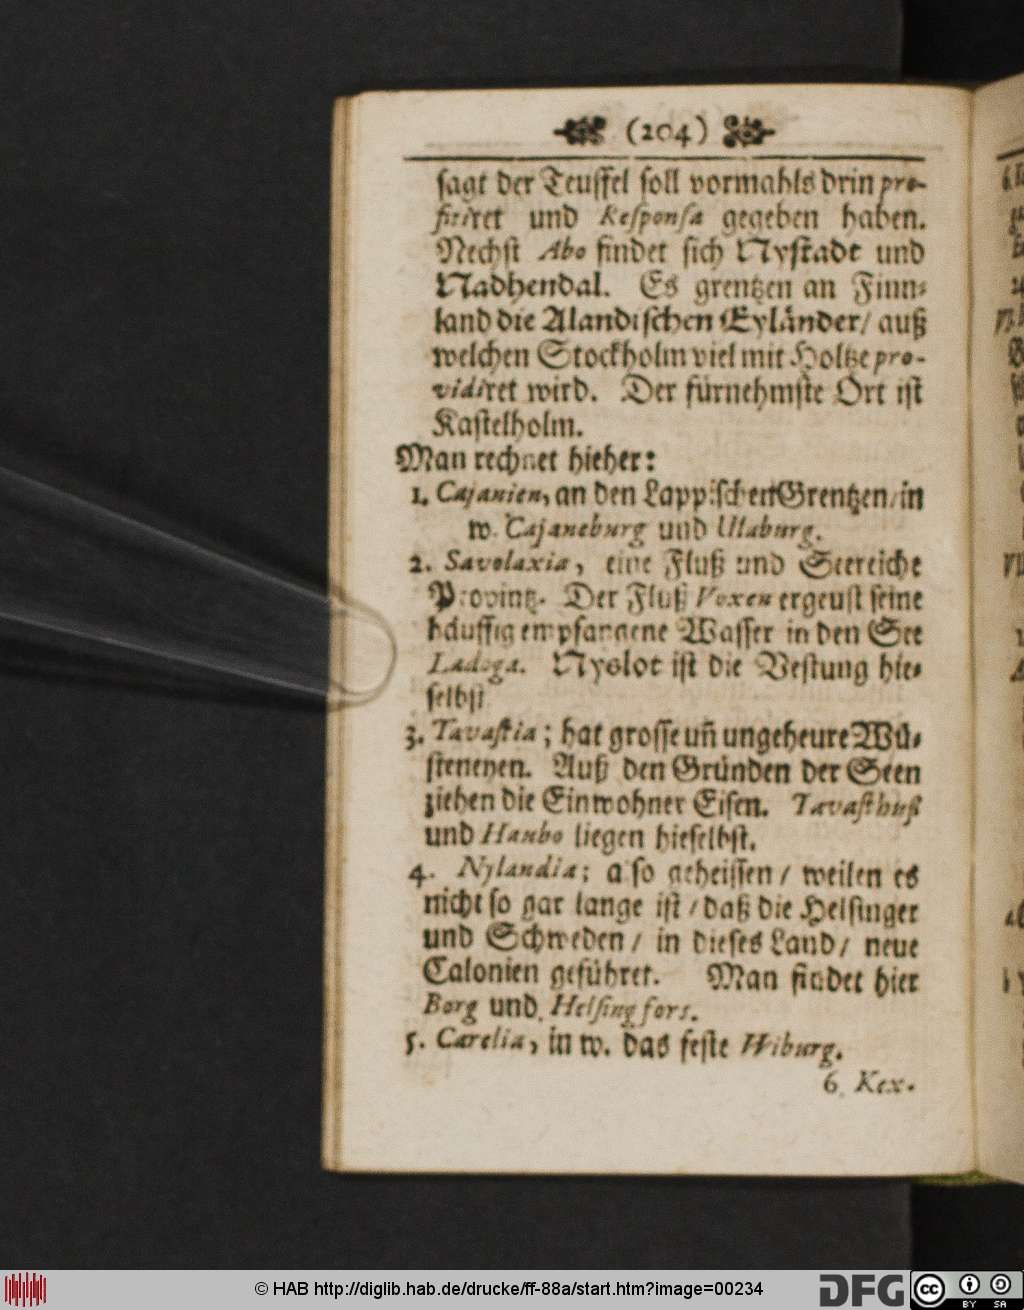 (204)
sagt der Teuffel soll vormahls drin pro-
fitiret und Responsa gegeben haben.
Nechst Abo findet sich Nystadt und
Nadhendal. Es grentzen an Finn-
land die Alandischen Eyländer/ auß
welchen Stockholm viel mit Holtze pro-
vidiret wird. Der fürnehmste Ort ist
Kastelholm.
Man rechnet hieher:
1. Cajanien, an den Lappischen Grentzen/ in
w. Cajaneburg und Ulaburg.
2. Savolaxia, eine Fluß und Seereiche
Provintz. Der Fluß Voxen ergeust seine
häuffig empfangene Wasser in den See
Ladoga. Nyslot ist die Vestung hie-
selbst
3. Tavastia; hat grosse uñ ungeheure Wü-
steneyen. Auß den Gründen der Seen
ziehen die Einwohner Eisen. Tavasthuß
und Hanbo liegen hieselbst.
4. Nylandia; also geheissen/ weilen es
nicht so gar lange ist/ daß die Helsinger
und Schweden/ in dieses Land/ neue
Calonien geführet. Man findet hier
Borg und Helsingfors.
5. Carelia, in w. das feste Wiburg.
6. Kex-
© HAB http://diglib.hab.de/drucke/ff-88a/start.htm?image=00234
DFG
cc BY SA